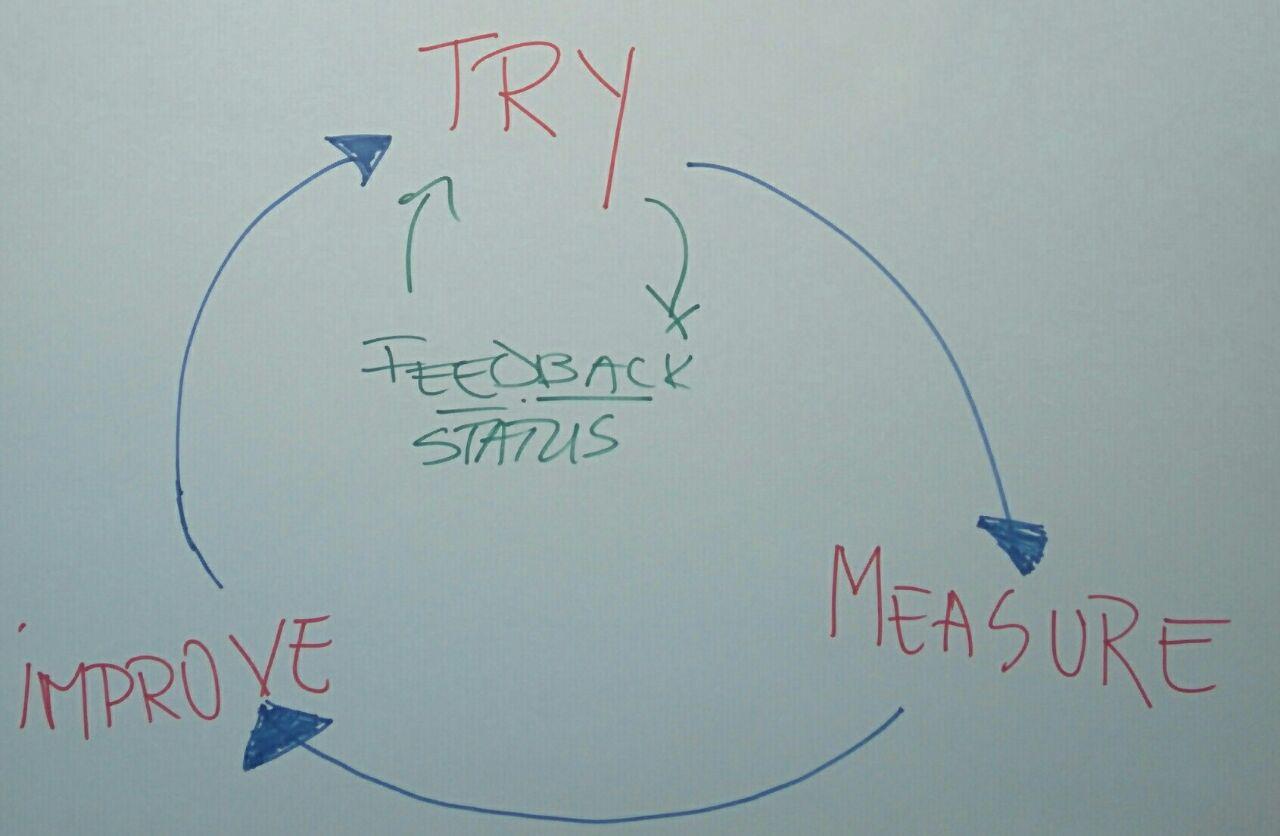 TRY
FEEDBACK
STATUS
MEASURE
iMPROVE